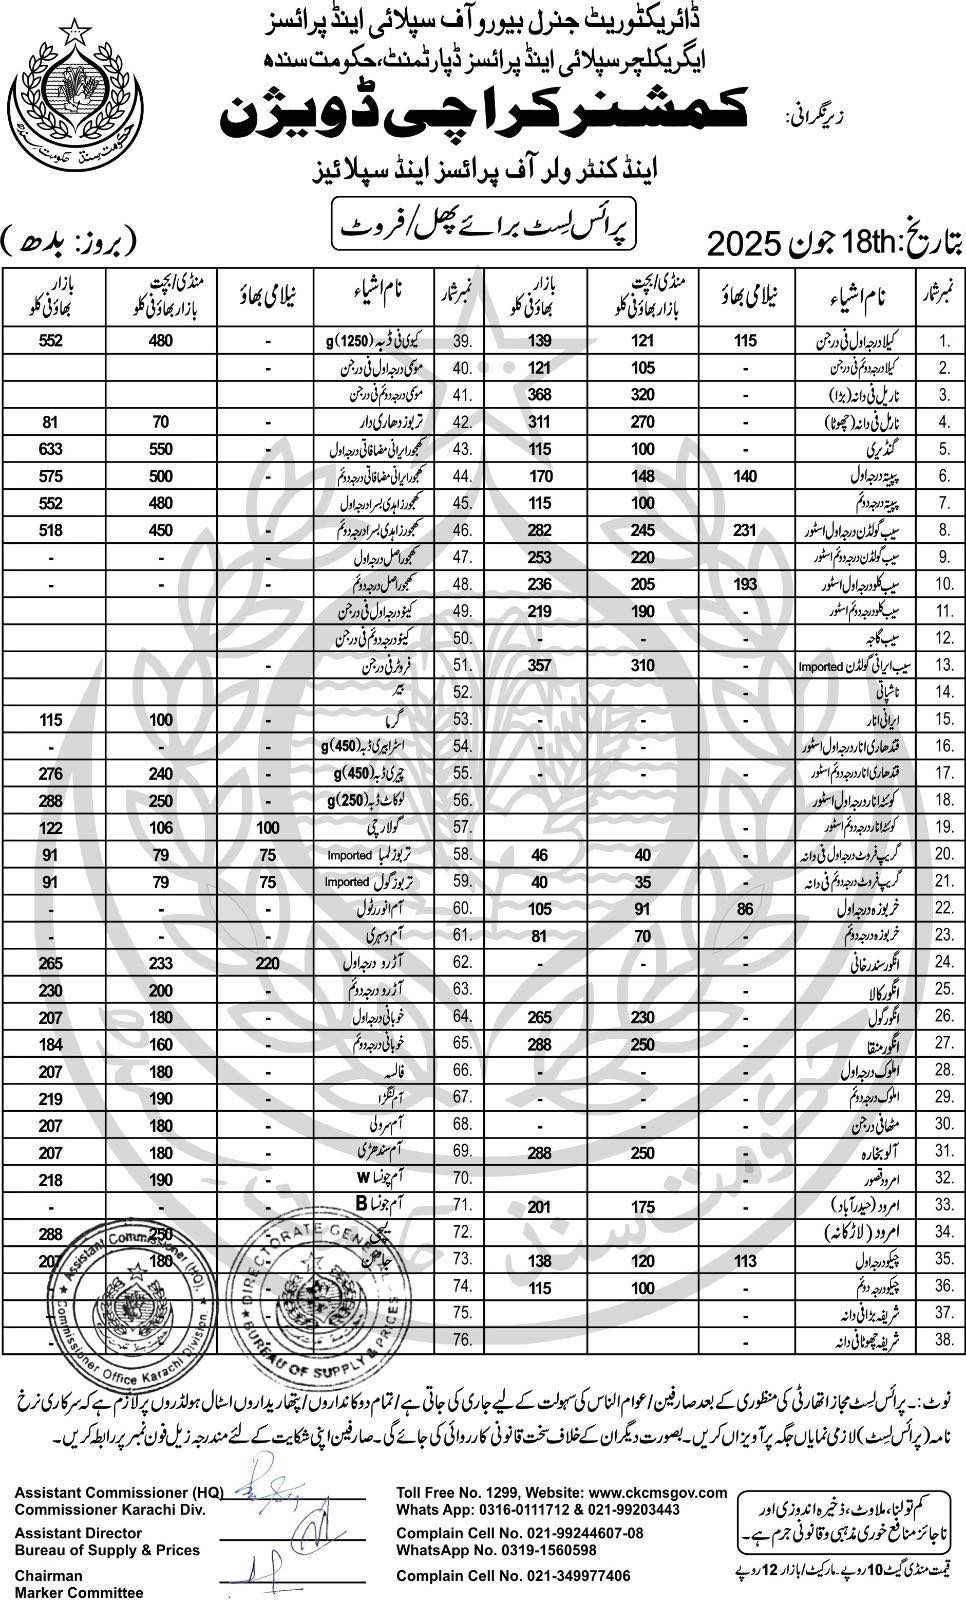 ڈائریکٹوریٹ جنرل بیورو آف سپلائی اینڈ پرائسز
ایگریکلچر سپلائی اینڈ پرائسز ڈپارٹمنٹ، حکومت سندھ
زیرِنگرانی: کمشنر کراچی ڈویژن
اینڈ کنٹرولر آف پرائسز اینڈ سپلائیز
پرائس لسٹ برائے پھل/فروٹ
بتاریخ: 18th جون 2025
(بروز: بدھ)
نمبر شمار نام اشیاء نیلامی بھاؤ منڈی/بچت بازار بھاؤ فی کلو بازار بھاؤ فی کلو
1. کیلا درجہ اول فی درجن 115 121 139
2. کیلا درجہ دوئم فی درجن - 105 121
3. ناریل فی دانہ (بڑا) - 320 368
4. ناریل فی دانہ (چھوٹا) - 270 311
5. گنڈیری - 100 115
6. پپیتہ درجہ اول 140 148 170
7. پپیتہ درجہ دوئم - 100 115
8. سیب گولڈن درجہ اول اسٹور 231 245 282
9. سیب گولڈن درجہ دوئم اسٹور - 220 253
10. سیب کلو درجہ اول اسٹور 193 205 236
11. سیب کلو درجہ دوئم اسٹور - 190 219
12. سیب گاجہ - - -
13. سیب ایرانی گولڈن Imported - 310 357
14. ناشپاتی -
15. ایرانی انار - - -
16. قندھاری انار درجہ اول اسٹور - - -
17. قندھاری انار درجہ دوئم اسٹور - - -
18. کوئٹہ انار درجہ اول اسٹور
19. کوئٹہ انار درجہ دوئم اسٹور -
20. گریپ فروٹ درجہ اول فی دانہ - 40 46
21. گریپ فروٹ درجہ دوئم فی دانہ - 35 40
22. خربوزہ درجہ اول 86 91 105
23. خربوزہ درجہ دوئم - 70 81
24. انگور سندرخانی - - -
25. انگور کالا -
26. انگور گول - 230 265
27. انگور منقا - 250 288
28. املوک درجہ اول - - -
29. املوک درجہ دوئم - - -
30. مٹھا فی درجن -
31. آلو بخارہ - 250 288
32. امرود قصور -
33. امرود (حیدرآباد) - 175 201
34. امرود (لاڑکانہ) -
35. چیکو درجہ اول 113 120 138
36. چیکو درجہ دوئم - 100 115
37. شریفہ بڑا فی دانہ -
38. شریفہ چھوٹا فی دانہ -
نمبر شمار نام اشیاء نیلامی بھاؤ منڈی/بچت بازار بھاؤ فی کلو بازار بھاؤ فی کلو
39. کیوی فی ڈبہ (1250)g - 480 552
40. موسمی درجہ اول فی درجن -
41. موسمی درجہ دوئم فی درجن
42. تربوز دھاری دار - 70 81
43. کھجور ایرانی مضافاتی درجہ اول - 550 633
44. کھجور ایرانی مضافاتی درجہ دوئم - 500 575
45. کھجور زاہدی بسرا درجہ اول - 480 552
46. کھجور زاہدی بسرا درجہ دوئم - 450 518
47. کھجور اصل درجہ اول - - -
48. کھجور اصل درجہ دوئم - - -
49. کینو درجہ اول فی درجن -
50. کینو درجہ دوئم فی درجن
51. فروٹر فی درجن -
52. بیر
53. گرما - 100 115
54. اسٹرابیری ڈبہ (450)g - - -
55. چیری ڈبہ (450)g - 240 276
56. لوکاٹ ڈبہ (250)g - 250 288
57. گولارچی 100 106 122
58. تربوز لمبا Imported 75 79 91
59. تربوز گول Imported 75 79 91
60. آم انور رٹول - - -
61. آم دسہری - - -
62. آڑو درجہ اول 220 233 265
63. آڑو درجہ دوئم - 200 230
64. خوبانی درجہ اول - 180 207
65. خوبانی درجہ دوئم - 160 184
66. فالسہ - 180 207
67. آم لنگڑا - 190 219
68. آم سرولی - 180 207
69. آم سندھڑی - 180 207
70. آم چونسا W - 190 218
71. آم چونسا B - - -
72. لیچی 250 288
73. جامن 180 207
74.
75.
76.
Assistant Commissioner (HQ) Commissioner Office Karachi Division.
DIRECTORATE GENERAL BUREAU OF SUPPLY & PRICES
نوٹ:۔ پرائس لسٹ مجاز اتھارٹی کی منظوری کے بعد صارفین/عوام الناس کی سہولت کے لیے جاری کی جاتی ہے/تمام دوکانداروں/پتھاریداروں اسٹال ہولڈروں پر لازم ہے کہ سرکاری نرخ
نامہ (پرائس لسٹ) لازمی نمایاں جگہ پر آویزاں کریں۔ بصورت دیگر ان کے خلاف سخت قانونی کارروائی کی جائے گی۔ صارفین اپنی شکایت کے لئے مندرجہ زیل فون نمبر پر رابطہ کریں۔
Assistant Commissioner (HQ)
Commissioner Karachi Div.
Assistant Director
Bureau of Supply & Prices
Chairman
Marker Committee
Toll Free No. 1299, Website: www.ckcmsgov.com
Whats App: 0316-0111712 & 021-99203443
Complain Cell No. 021-99244607-08
WhatsApp No. 0319-1560598
Complain Cell No. 021-349977406
کم تولنا، ملاوٹ، ذخیرہ اندوزی اور
ناجائز منافع خوری مذہبی و قانونی جرم ہے۔
قیمت منڈی گیٹ 10 روپے۔ مارکیٹ/بازار 12 روپے